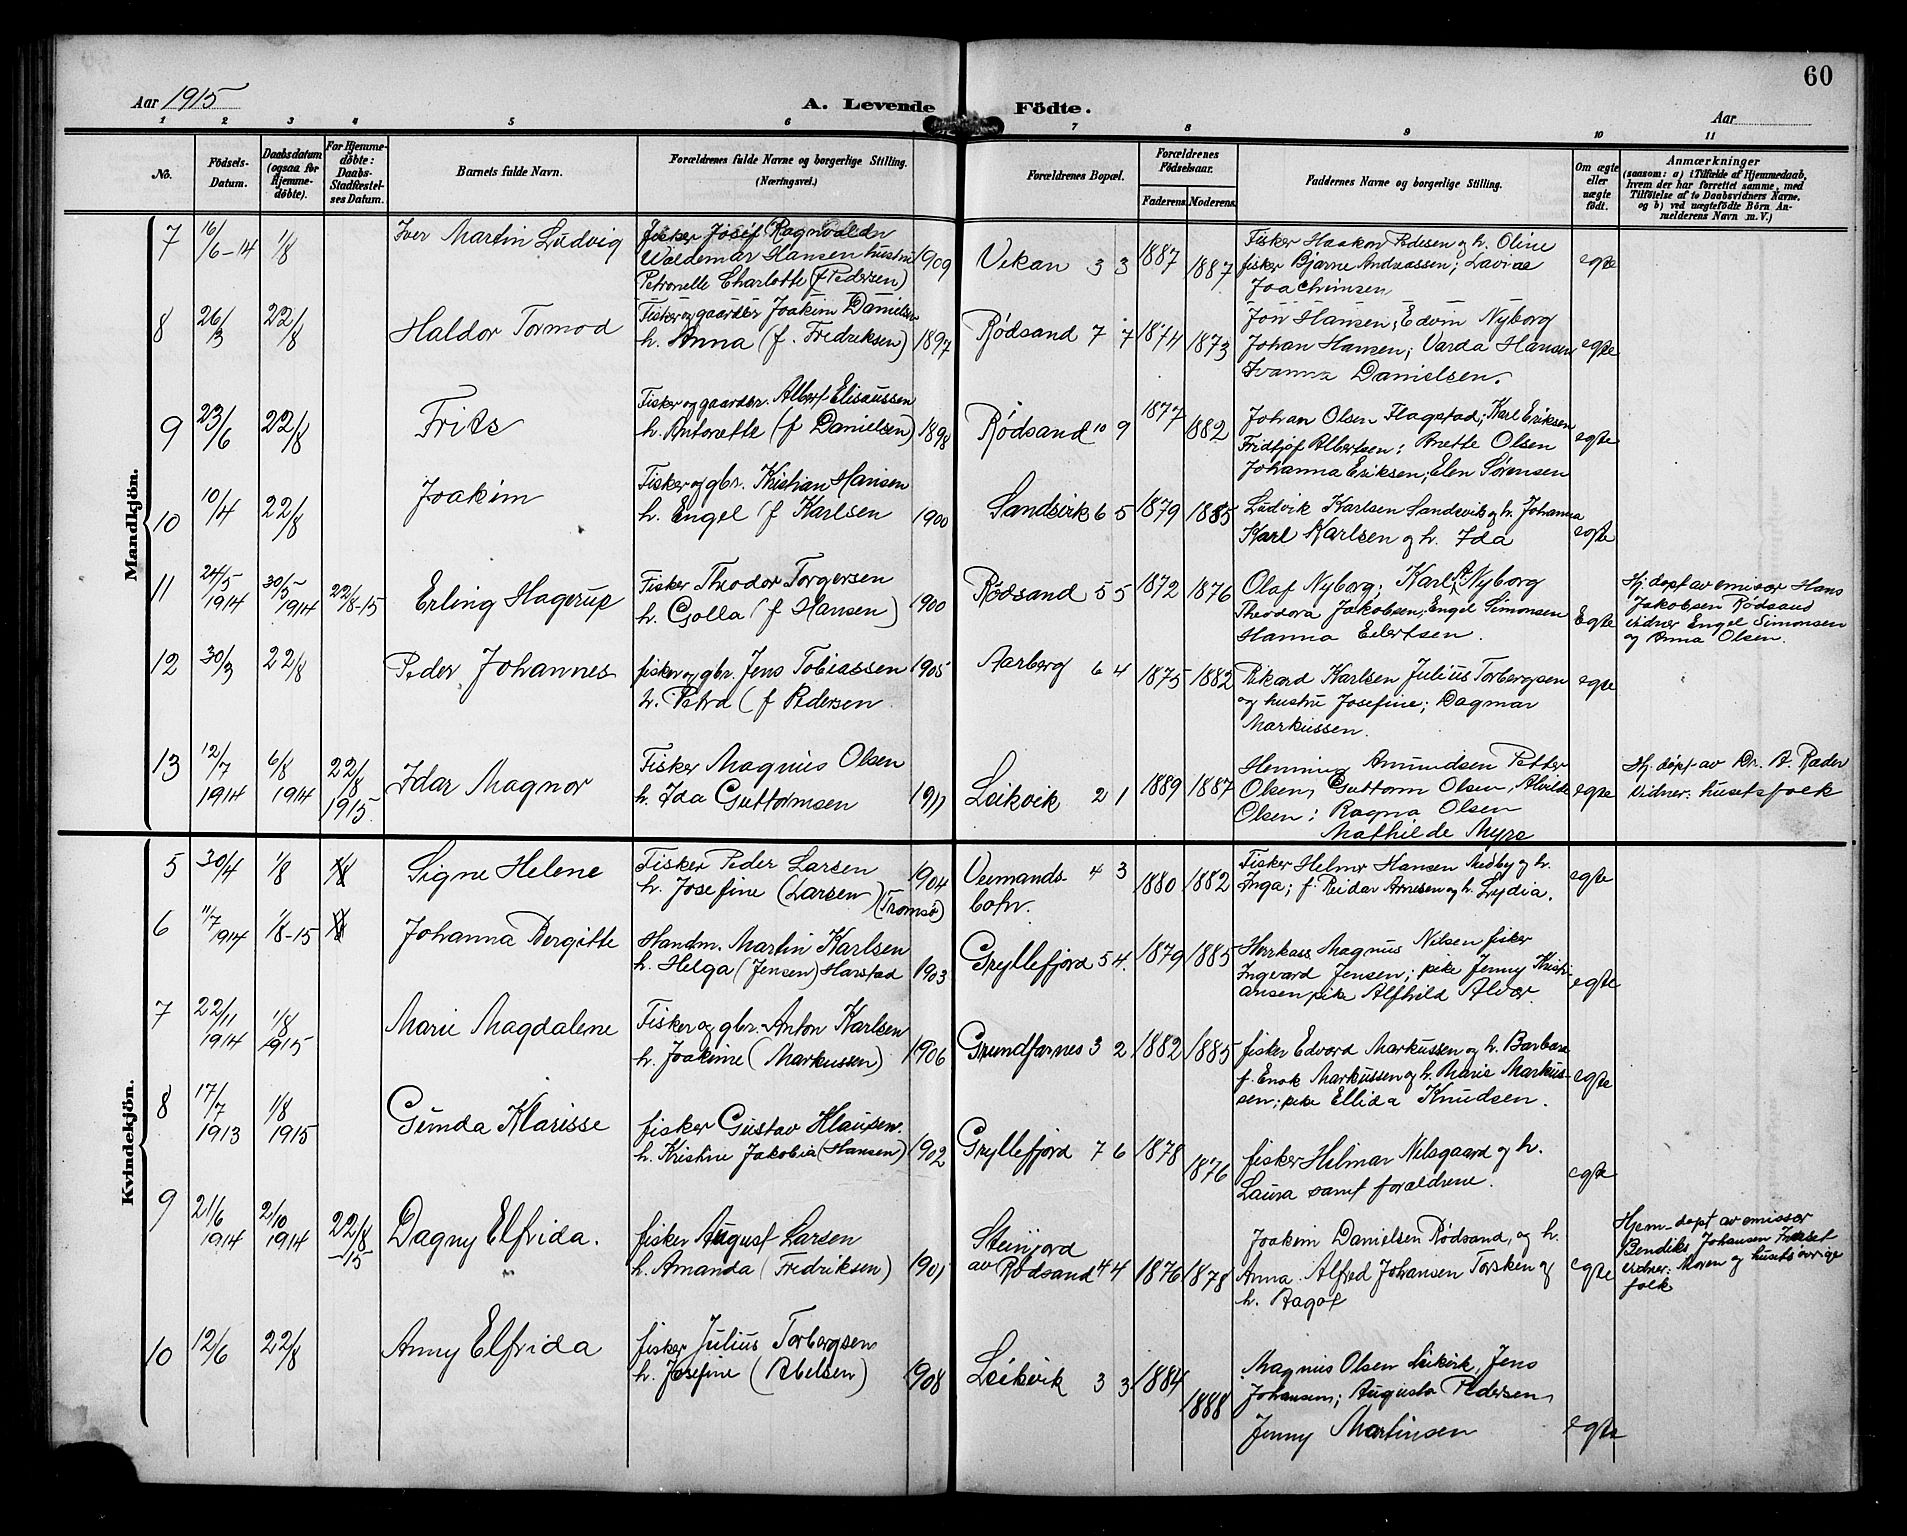 60
Aar 1915
A. Levende Födte.
Aar
1 2 3 4 5 6 7 8 9 10 11
No.
Födsels-Datum.
Daabsdatum (ogsaa for Hjemme-döbte).
For Hjemme-döbte: Daabs-Stadfæstel-ses Datum.
Barnets fulde Navn.
Forældrenes fulde Navne og borgerlige Stilling.
(Næringsvei.)
Forældrenes Bopæl.
Forældrenes Födselsaar.
Faderens. Moderens.
Faddernes Navne og borgerlige Stilling.
Om ægte eller uægte födt.
Anmærkninger
(saasom: a) i Tilfælde af Hjemmedaab,
hvem der har forrettet samme, med
Tilföielse af to Daabsvidners Navne.
og b) ved uægtefödte Börn An-
melderens Navn m. V.)
Mandkjön.
7 16/6-14 1/8 Iver Martin Ludvig
Fisker Josef Ragnvaldn
Waldemar Hansen hustru
Petronelle Charlotte (f Pedersen)
1909 Vekan 3 3 1887 1887
Fisker Haakon Pedesen og h. Oline
fisker Bjarne Andreassen; Lavine
Joachimsen
egte
8 26/3 22/8 Haldor Tormod
Fisker og gaardbr Joakim Danielsen
h. Anna (f. Fredriksen)
1897 Rødsand 7 7 1874 1873
Jon Hansen; Edvin Nyborg
Johan Hansen; Varda Hansen
Ivanna Danielsen.
egte
9 23/6 22/8 Frits
Fisker og gaardbr. Albert Elisaussen
h. Antonette (f Danielsen)
1898 Rødsand 10 9 1877 1882
Johan Olsen Flagstad; Karl Eriksen
Fridtjof Albertsen; Anette Olsen
Johanna Eriksen; Elen Sørensen
egte
10 10/4 22/8 Joakim
Fisker og gbr. Kristian Hansen
h. Engel f Karlsen
1900 Sandvik 6 5 1879 1885
Ludvik Karlsen Sandvik og h. Johanna
Karl Karlsen og h. Ida
egte
11 24/5 1914 30/5 1914 22/8-15 Erling Hagerup
Fisker Theodor Torgersen
h. Golla (f Hansen)
1900 Rødsand 5 5 1872 1876
Olaf Nyborg; Karl A Nyborg
Theodora Jakobsen; Engel Simonsen
Hanna Eilertsen.
Egte
Hj. døpt av emissær Hans
Jakobsen Rødsand
vidner Engel Simonsen
og Anna Olsen.
12 30/3 22/8 Peder Johannes
fisker og gbr. Jens Tobiassen
h. Petra (f Pedersen
1905 Aarberg 6 4 1875 1882
Rikard Karlsen Julius Torbergsen
og hustru Josefine; Dagmar
Markussen.
egte
13 12/7 1914 6/8 1914 22/8 1915. Idar Magnor
Fisker Magnus Olsen
h. Ida Guttormsen
1911 Leikvik 2 1 1889 1887
Henning Amundsen Petter
Olsen, Guttorm Olsen, Alvilde
Olsen; Ragna Olsen
Mathilde Myre
egte
Hj. døpt av Dr. A. Ræder
Vidner: husetsfolk
Kvindekjön.
5 30/4 1/8 Signe Helene
Fisker Peder Larsen
h. Josefine (Larsen) (Tromsø)
1904 Veimands-
botn. 4 3 1880 1882
Fisker Helmer Hansen Medby og h.
Inga; f. Reidar Arnesen og h. Lydia.
egte
6 11/7 1914 1/8-15 Johanna Bergitte
Handm. Martin Karlsen
h. Helga (Jensen) Harstad
1903 Gryllefjord 5 4. 1879 1885
Herrkass Magnus Nilsen fisker
Ingvard Jensen; pike Jenny Kristi-
ansen pike Alfhild Alvær.
egte
7 22/11 1914 1/8 1915 Marie Magdalene
Fisker og gbr. Anton Karlsen
h. Joakime (Markussen)
1906 Grundfarnes 3 2 1882 1885
fisker Edvard Markussen og h. Barbara
f. Enok Markussen og h. Marie Markus-
sen; pike Ellida Knudsen.
egte
8 17/7 1913 1/8 1915 Gunda Klarisse
fisker Gustav Klausen.
h. Kristine Jakobia (Hansen)
1902 Gryllefjord 7 6 1878 1876
fisker Hilmar Nilsgaard og h.
Laura samt forældrene.
egte
9 21/6 1914 2/10 1914 22/8-15 Dagny Elfrida.
fisker August Larsen
h. Amanda (Fredriksen)
1901 Steinjord
av Rødsand 4 4 1876 1878
Joakim Danielsen Rødsand, og h.
Anna. Alfred Johansen Torsken og
h. Aagot
egte
Hjem-døpt av emissær
Bendiks Johansen
vidner: Moren og husets øvrige
folk
10 12/6 22/8 Anny Elfrida
fisker Julius Torbergsen
h. Josefine (Abelsen)
1908 Leikvik 3 3 1884 1888
Magnus Olsen Leikvik, Jens
Johansen; Augusta Pedersen,
Jenny Martinsen
egte